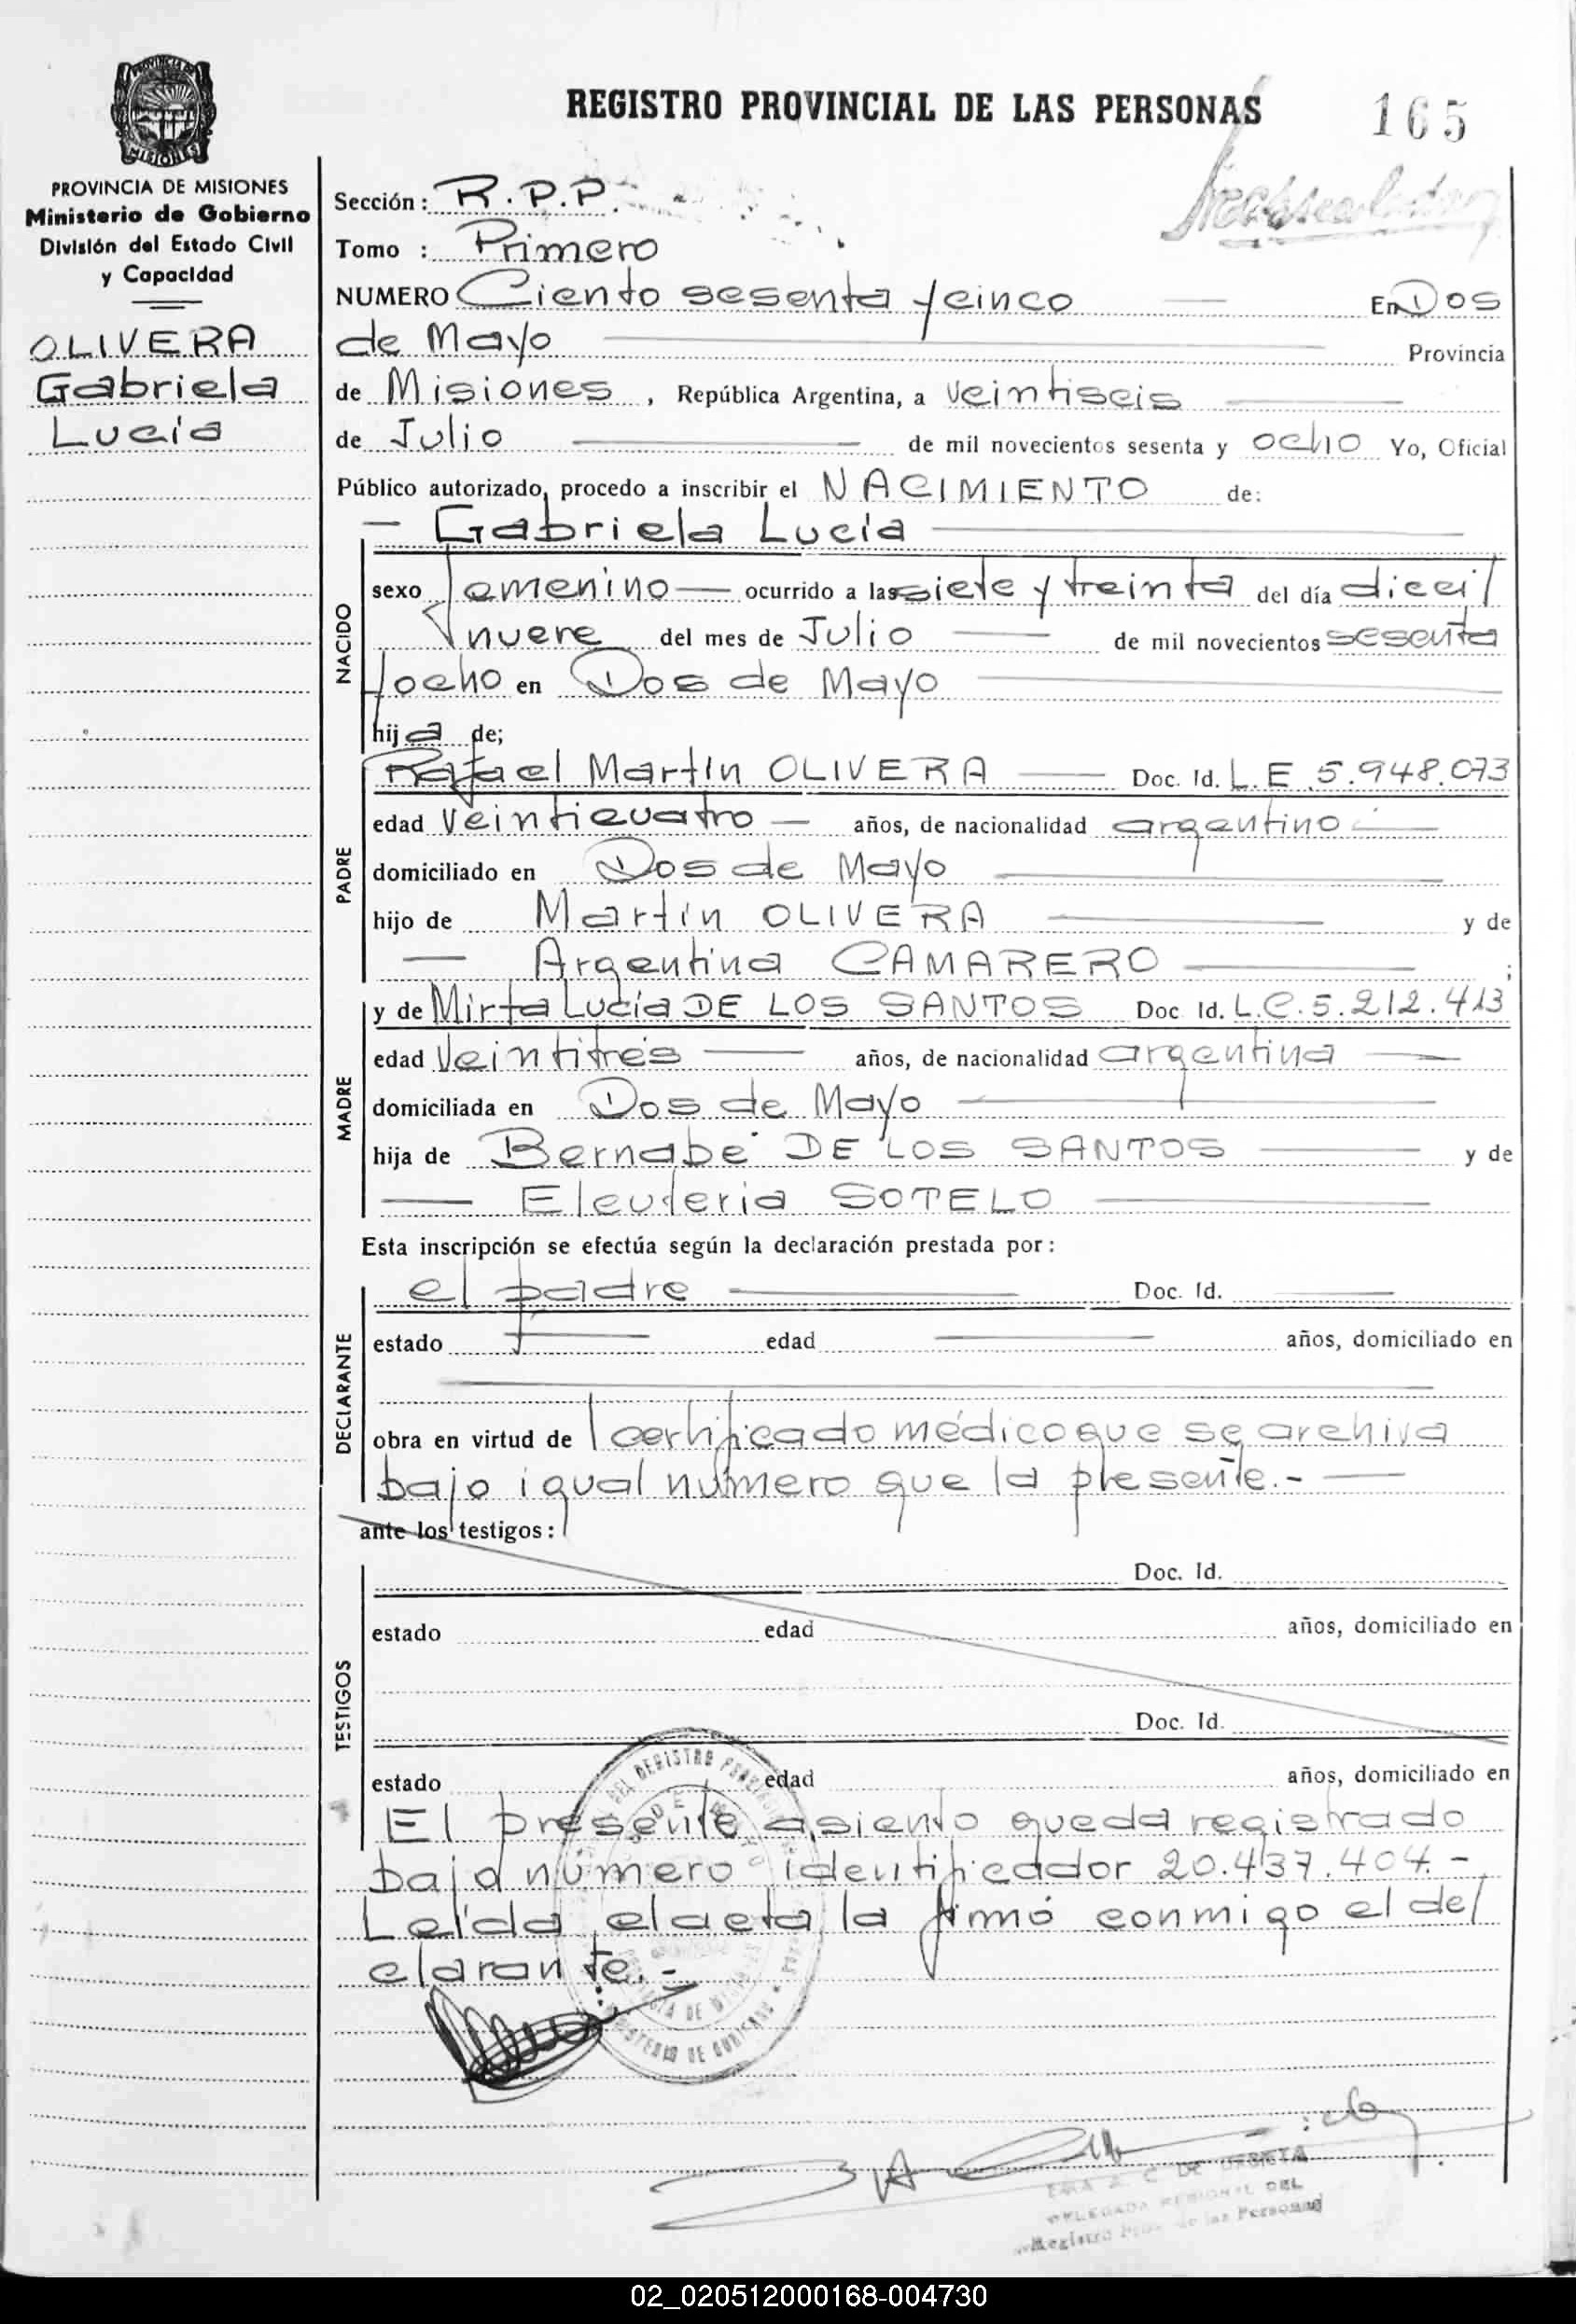 PROVINCIA DE MISIONES
Ministerio de Gobierno
División del Estado Civil
y Capacidad
OLIVERA
Gabriela
Lucía
REGISTRO PROVINCIAL DE LAS PERSONAS
165
Sección: R.P.P.
Tomo : Primero
NUMERO Ciento sesenta y cinco En Dos
de Mayo Provincia
de Misiones, República Argentina, a veintiseis
de Julio de mil novecientos sesenta y ocho Yo, Oficial
Público autorizado, procedo a inscribir el NACIMIENTO de:
— Gabriela Lucía
NACIDO
sexo femenino — ocurrido a las siete y treinta del día dieci/
nueve del mes de Julio de mil novecientos sesenta
y ocho en Dos de Mayo
hija de;
PADRE
Rafael Martín OLIVERA Doc. Id. L.E 5.948.073
edad Veinticuatro — años, de nacionalidad argentino
domiciliado en Dos de Mayo
hijo de Martín OLIVERA y de
— Argentina CAMARERO ;
MADRE
y de Mirta Lucía DE LOS SANTOS Doc Id. L.C. 5.212.413
edad Veintitrés años, de nacionalidad argentina
domiciliada en Dos de Mayo
hija de Bernabé DE LOS SANTOS y de
— Eleuteria SOTELO
Esta inscripción se efectúa según la declaración prestada por:
DECLARANTE
el padre Doc. Id.
estado edad años, domiciliado en
obra en virtud de / certificado médico que se archiva
bajo igual número que la presente.-
ante los testigos:
TESTIGOS
Doc. Id.
estado edad años, domiciliado en
Doc. Id.
estado edad años, domiciliado en
El presente asiento queda registrado
bajo número identificador 20.437.404.-
Leída el acta, la firmó conmigo el de/
clarante.-
DELEGADA REGIONAL DEL
Registro de las Personas
02_020512000168-004730